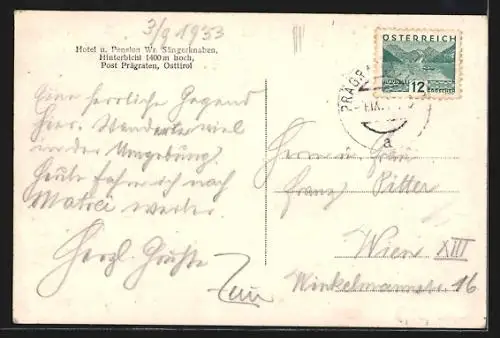 3/9 1933
Hotel u. Pension Wr. Sängerknaben,
Hinterbichl 1400 m hoch,
Post Prägraten, Osttirol
Eine herrliche Gegend
hier. Wanderte viel
in der Umgebung.
Heute fahre ich nach
Matrei weiter.
Herzl. Grüße
ÖSTERREICH
12
GROSCHEN
PRÄGR
IX.
a
Herrn u. Frau
Franz Pitter
Wien XIII
Winkelmannstr. 16